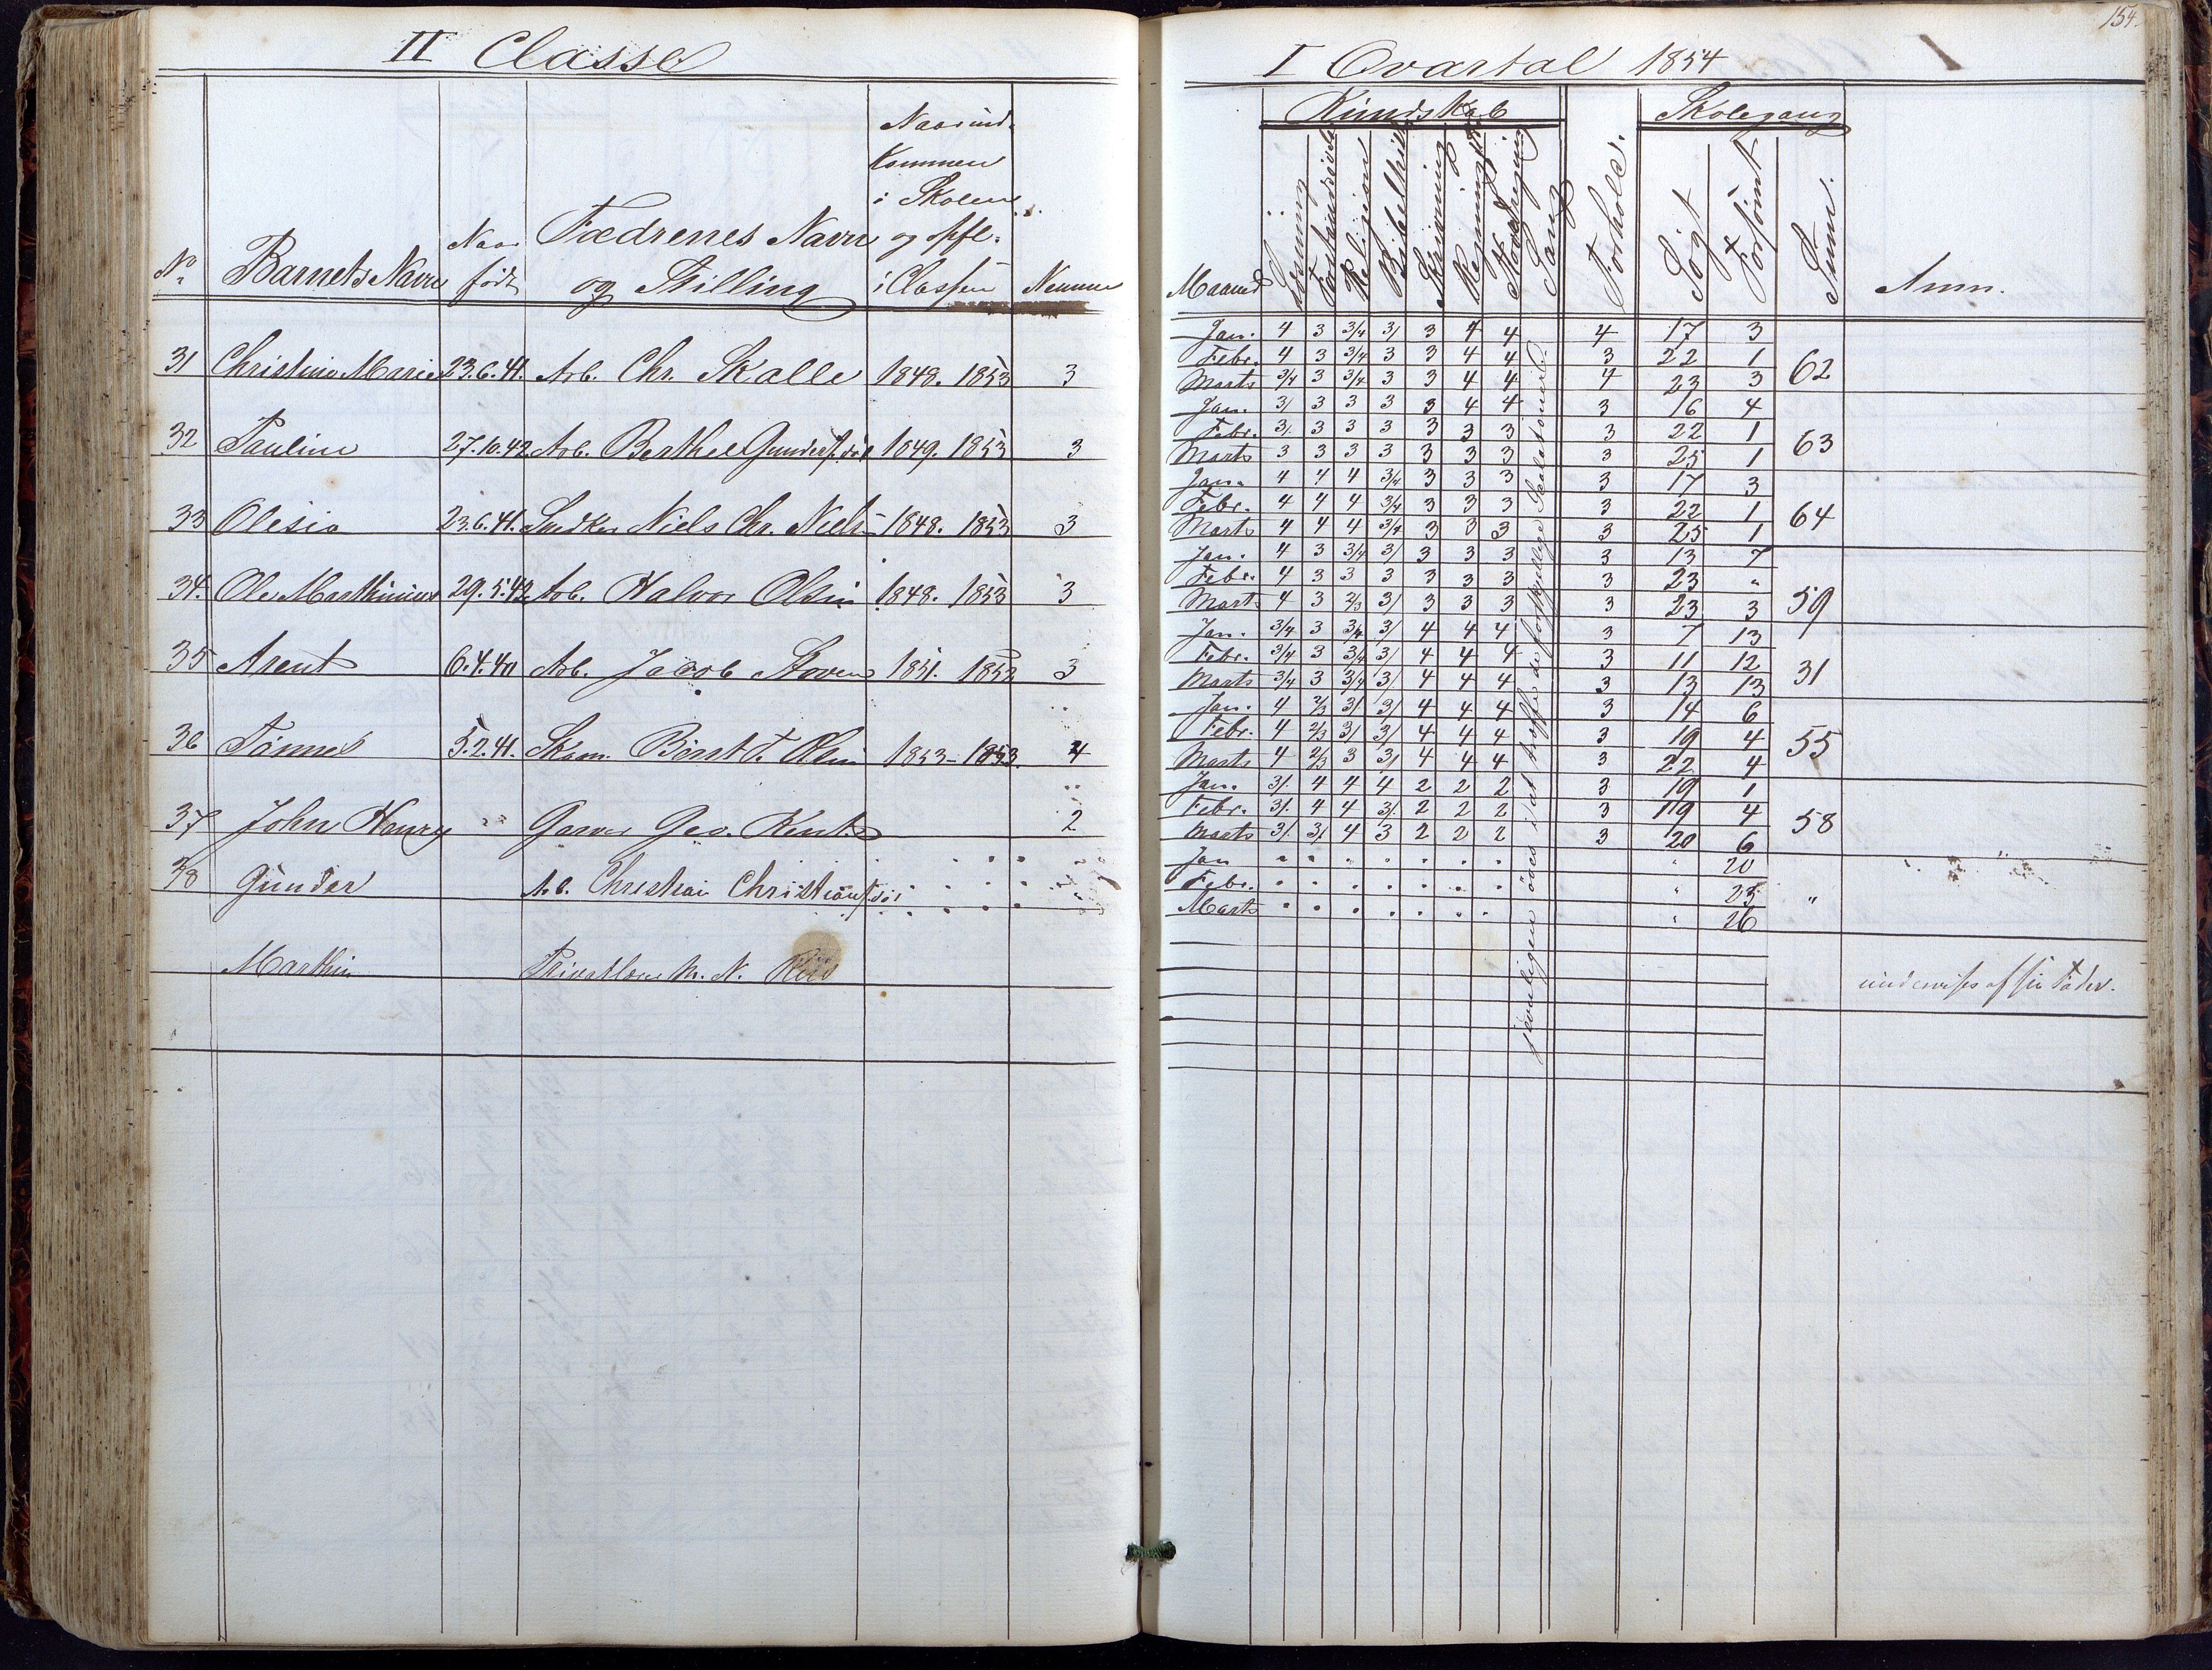 II Classe
No
Barnets Navn
Naar
født
Fædrenes Navn
og Stilling
Naar ind-
kommen
i Skolen
og opfl.
i Classen
Nemme
31 Christine Marie 23.6.41. Arb. Chr. Skalle 1848. 1853 3
32 Pauline 27.10.42 Arb. Berthel 1849. 1853 3
33 Olesia 23.6.41. Snedker Niels Chr. Niels 1848. 1853 3
34. Ole Marthinius 29.5.42 Arb. Halvor Olsen 1848. 1853 3
35 Arent 6.4.40 Arb. Jacob 1851. 1853 3
36 Tönnes 5.2.41. 1853- 1853. 4
37 John Henry " Garver Geo. Kent 2
38 Gunder A.b. Christian
Marthin Privatlærer M. N.
154.
I Qvartal 1854
Kundskab
Skolegang
Maaned
Læsning
Religion
Skrivning
Sang
Forhold.
Søgt
Forsömt
Sum.
Anm.
Jan. 4 3 3/4 3/ 3 4 4 4 17 3
Febr. 4 3 3/4 3 3 4 4 3 22 1 62
Marts 3/4 3 3/4 3 3 4 4 4 23 3
Jan. 3/ 3 3 3 3 4 4 3 16 4
Febr. 3/. 3 3 3 3 3 3 3 22 1 63
Marts 3 3 3 3 3 3 3 3 25 1
Jan. 4 4 4 3/4 3 3 3 3 17 3
Febr. 4 4 4 3/4 3 3 3 3 22 1 64
Marts 4 4 4 3/4 3 3 3 3 25 1
Jan. 4 3 3/4 3/ 3 3 3 3 13 7
Febr. 4 3 3 3 3 3 3 3 23 " 59
Marts 4 3 2/3 3/ 3 3 3 3 23 3
Jan. 3/4 3 3/4 3/ 4 4 4 3 7 13
Febr. 3/4 3 3/4 3/ 4 4 4 3 11 12 31
Marts 3/4 3 3/4 3/ 4 4 4 3 13 13
Jan. 4 2/3 3/ 3/ 4 4 4 3 14 6
Febr. 4 2/3 3/ 3/ 4 4 4 3 19 4 55
Marts 4 2/3 3 3/ 4 4 4 3 22 4
Jan. 3/. 4 4 4 2 2 2 3 19 1
Febr. 3/. 4 4 3/. 2 2 2 3 19 4 58
Marts 3/. 3/. 4 3 2 2 2 3 20 6
Jan " 20
Febr. " 23 "
Marts " 26
undervises af sin Fader.